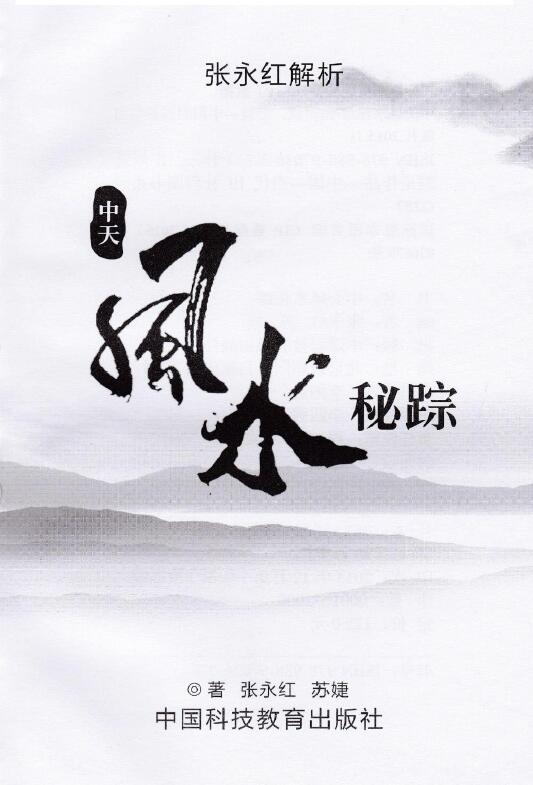 张永红解析
中天
風水
秘踪
◎著 张永红 苏婕
中国科技教育出版社